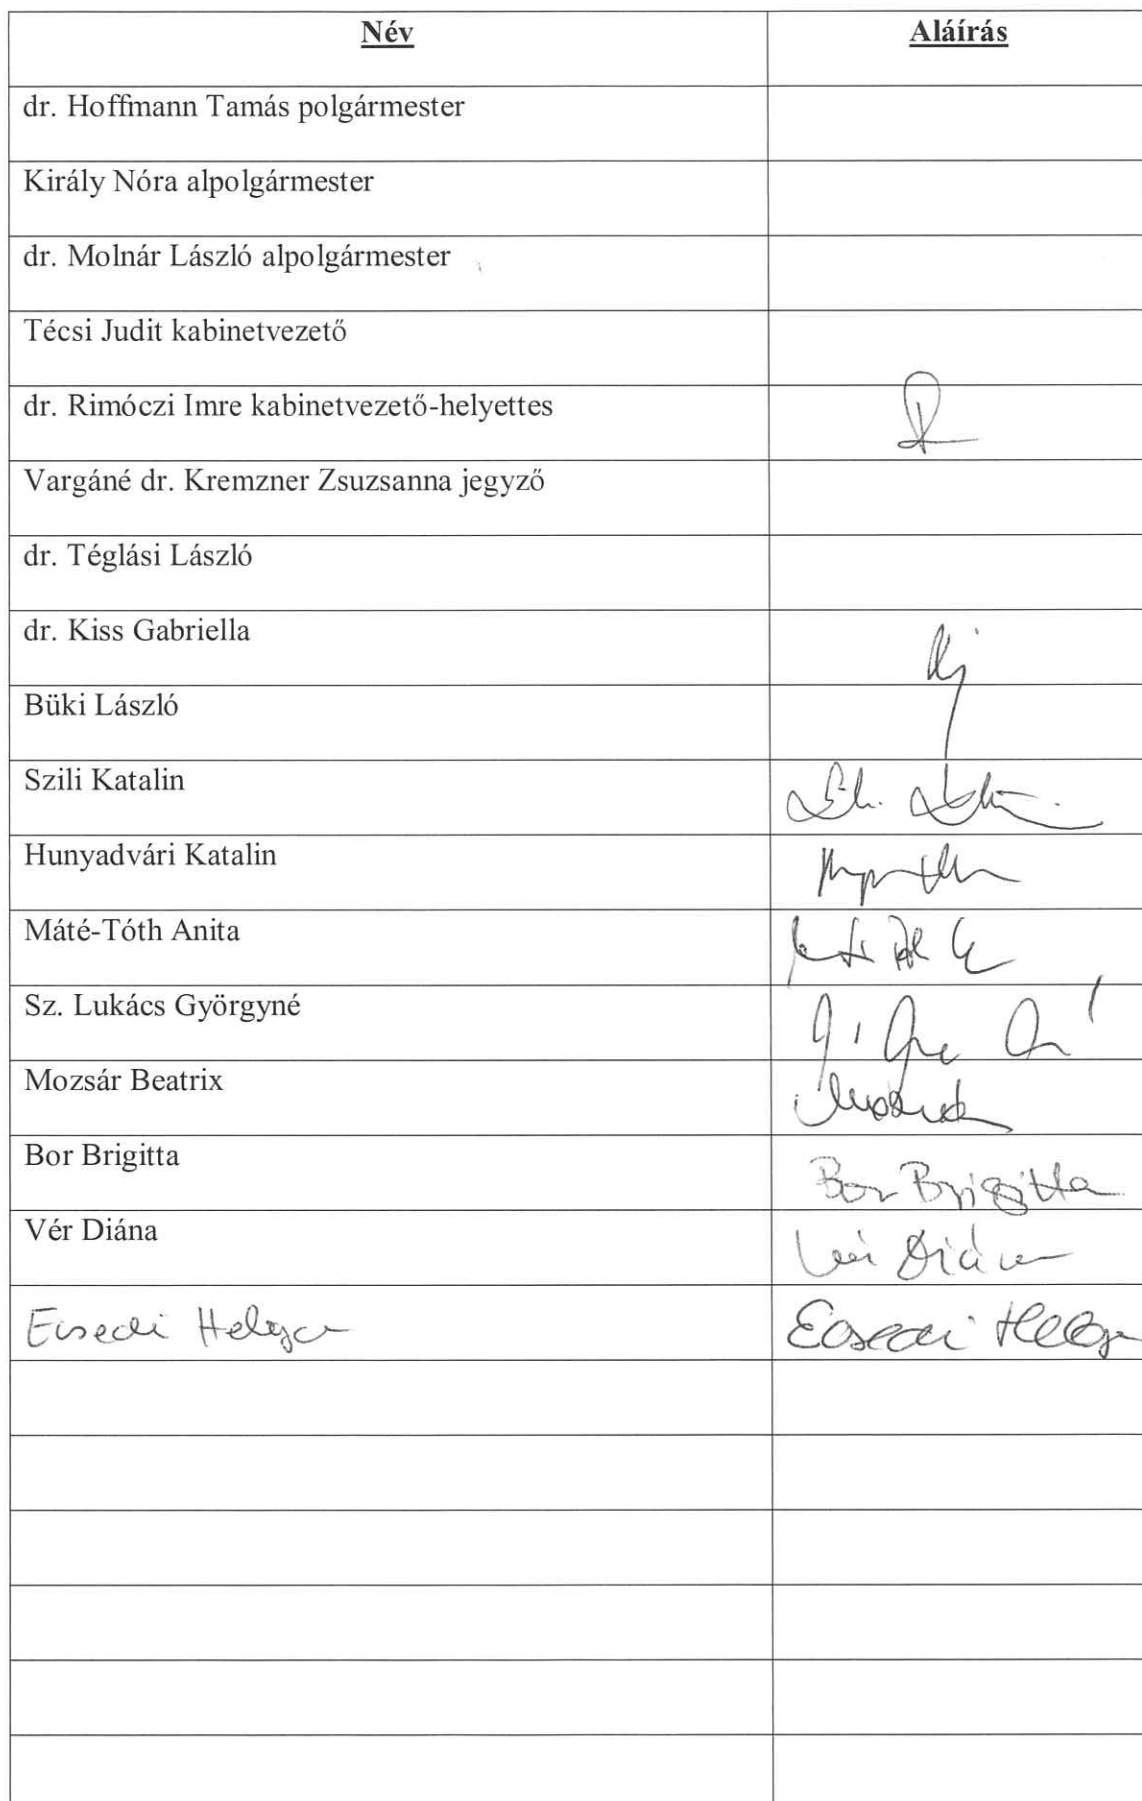 Név Aláírás
dr. Hoffmann Tamás polgármester
Király Nóra alpolgármester
dr. Molnár László alpolgármester
Técsi Judit kabinetvezető
dr. Rimóczi Imre kabinetvezető-helyettes
Vargáné dr. Kremzner Zsuzsanna jegyző
dr. Téglási László
dr. Kiss Gabriella
Büki László
Szili Katalin
Hunyadvári Katalin
Máté-Tóth Anita
Sz. Lukács Györgyné
Mozsár Beatrix
Bor Brigitta Bor Brigitta
Vér Diána Vér Diána
Helga Helga